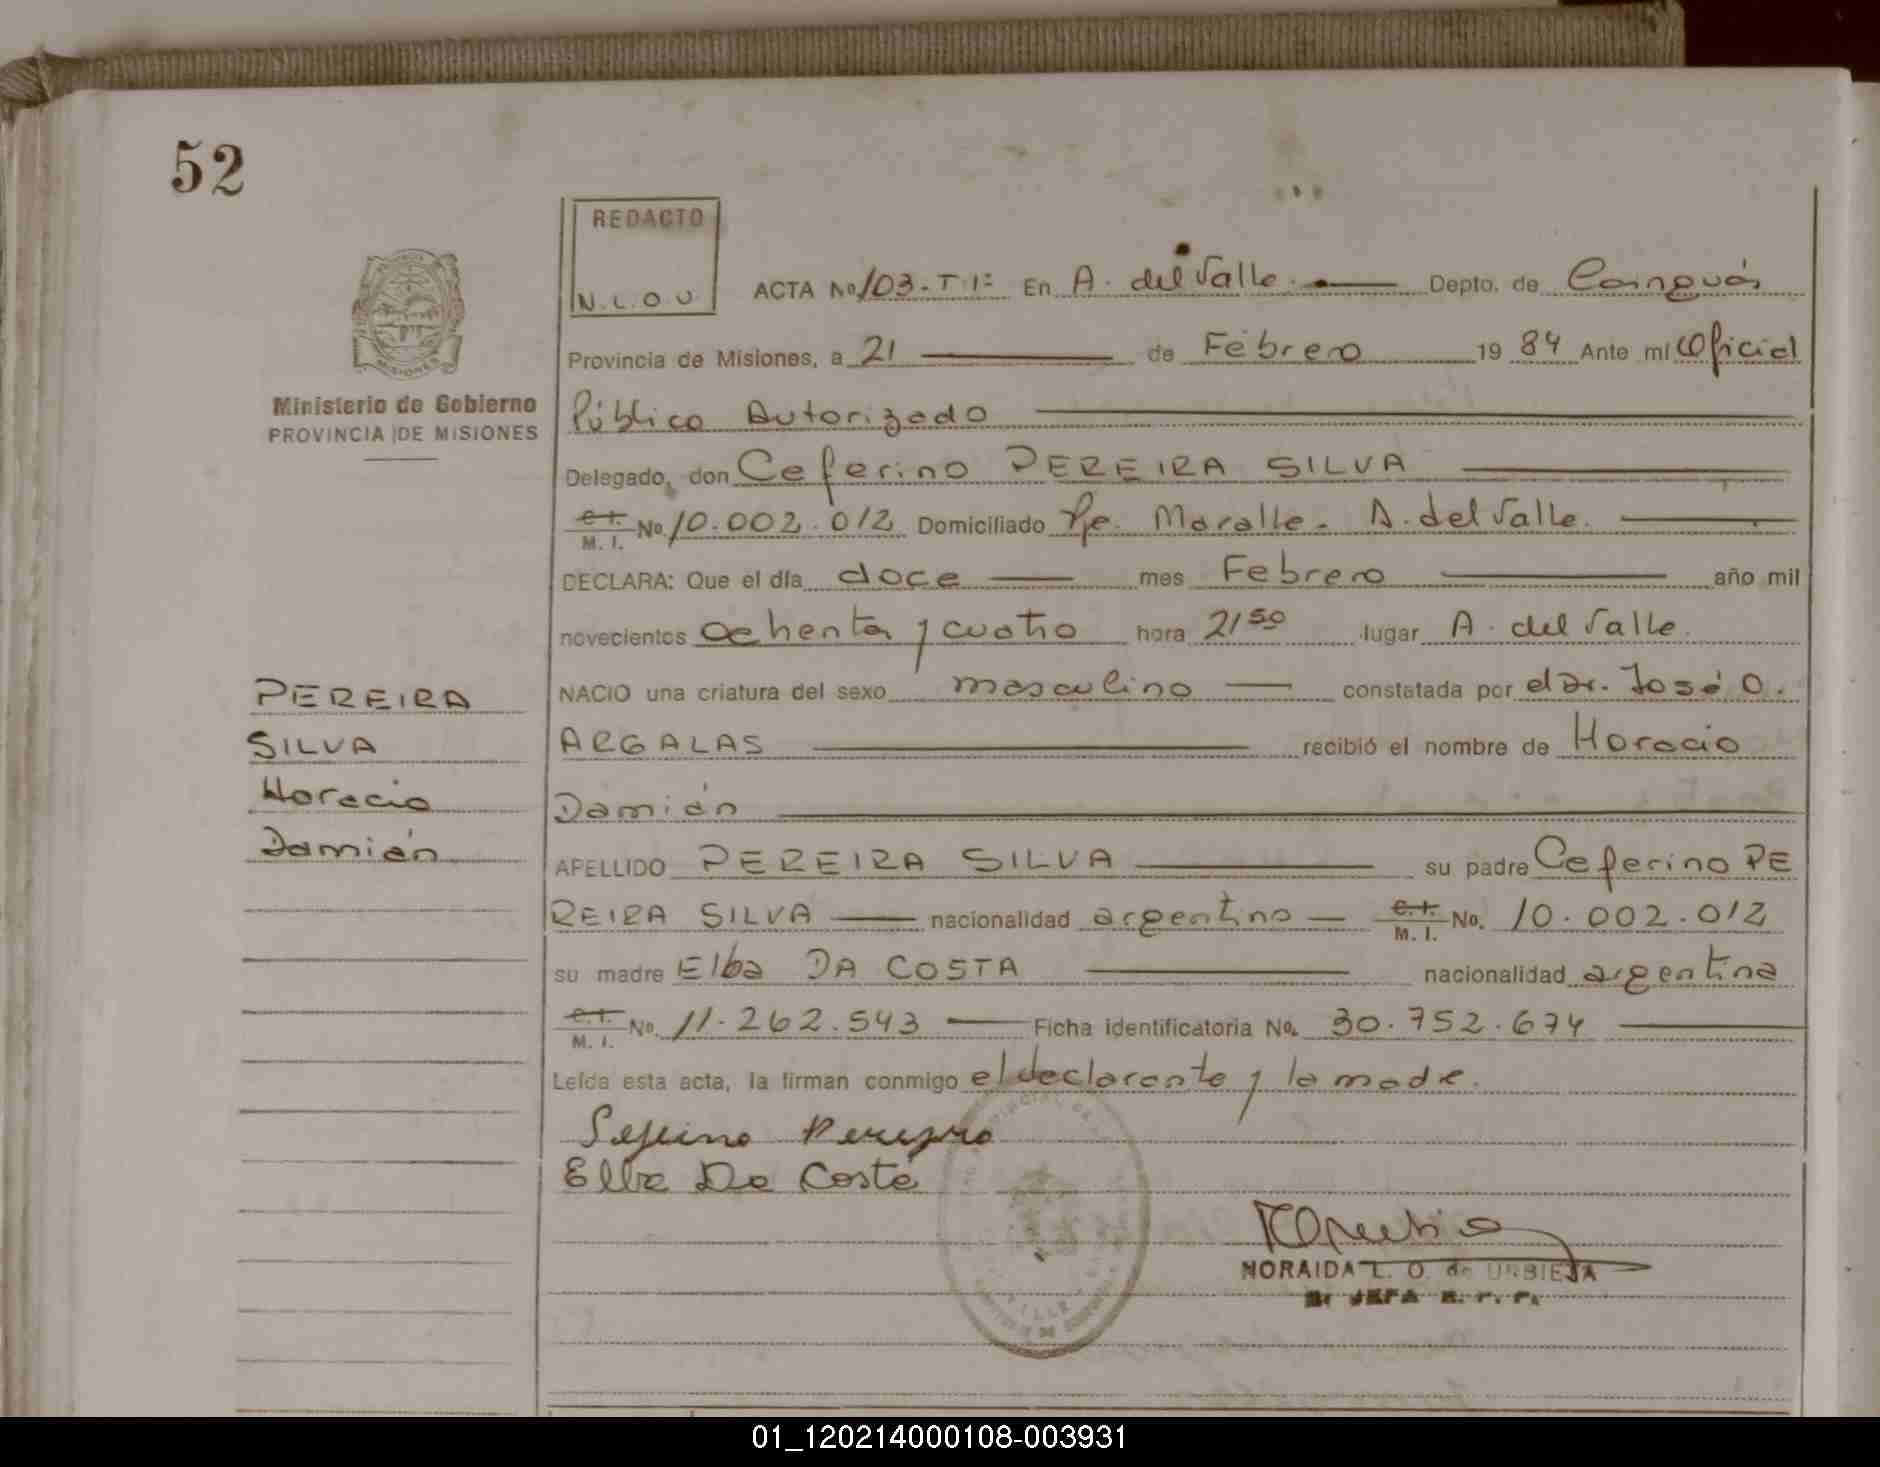 52
REDACTO
N.L.O.U.
ACTA No 103-T.1º En A. del Valle. Depto. de Cainguás
Provincia de Misiones, a 21 de Febrero 1984 Ante mí Oficial
Ministerio de Gobierno
PROVINCIA DE MISIONES
Público Autorizado
Delegado, don Ceferino PEREIRA SILVA
C.I. M. I. No. 10.002.012 Domiciliado Pje. Maralle. A. del Valle.
DECLARA: Que el día doce mes Febrero año mil
novecientos ochenta y cuatro hora 21 50 lugar A. del Valle.
NACIO una criatura del sexo masculino constatada por el dr. José O.
ARGALAS recibió el nombre de Horacio
Damián
PEREIRA
SILVA
Horacio
Damián
APELLIDO PEREIRA SILVA su padre Ceferino PE
REIRA SILVA nacionalidad argentino C.I. M. I. No. 10.002.012
su madre Elba DA COSTA nacionalidad argentina
C.I. M. I. No. 11.262.543 Ficha identificatoria No. 30.752.674
Leída esta acta, la firman conmigo el declarante y la madre.
Elba Da Costa
NORAIDA L. O. de URBIETA
MISIONES
01_120214000108-003931